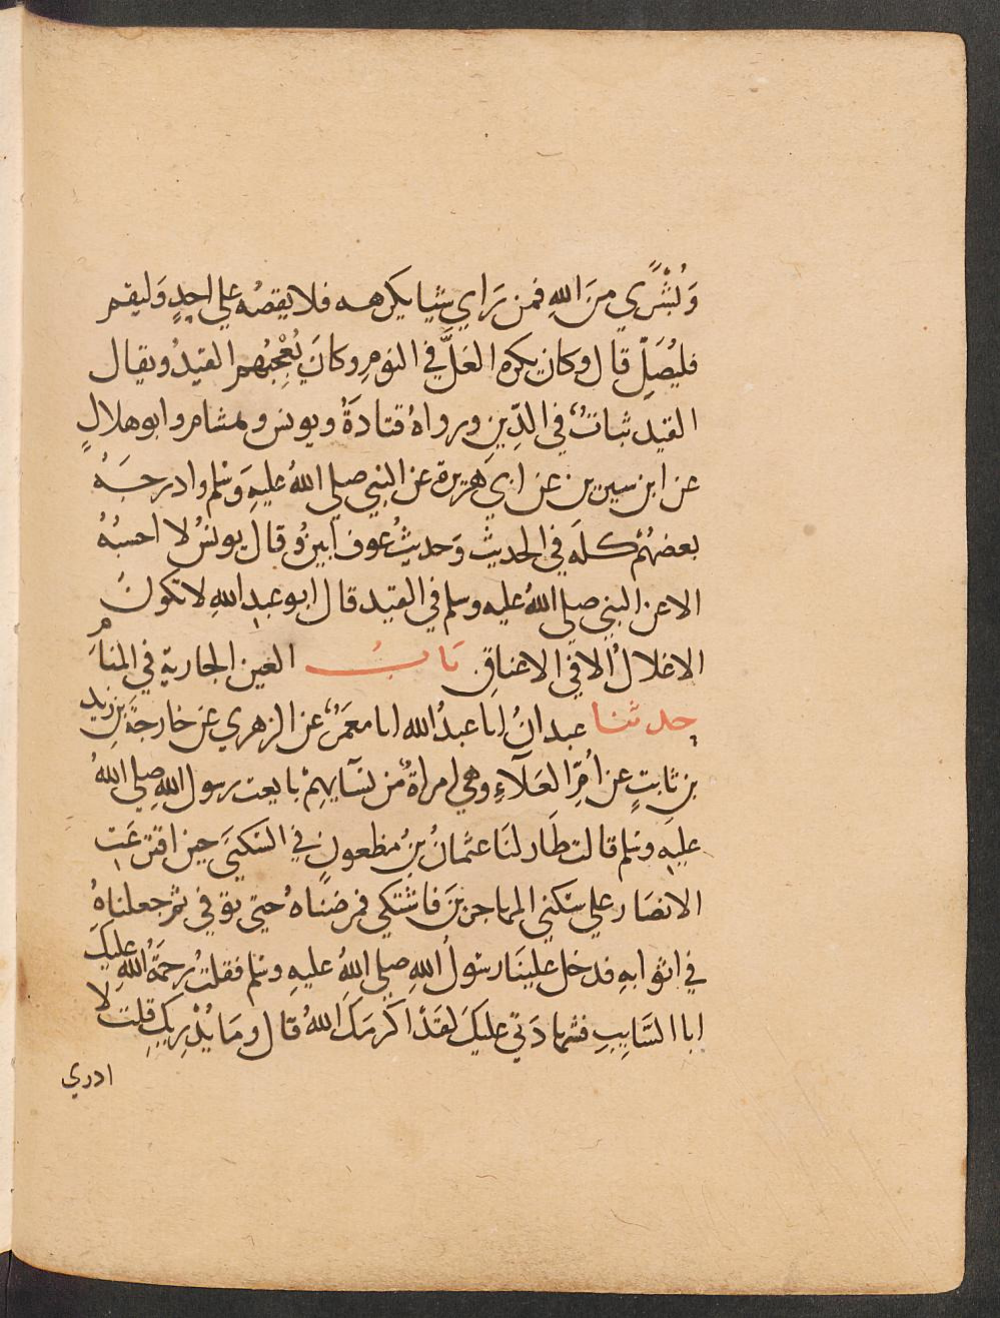 وَبُشْرًي مِنَ اللهِ فمن رَاي شيا يكرهه فلا يقصُه علي احدٍ وَليقم
فليُصَلِّ قال وكان يكره الغلَّ في النومِ وكانَ يُعْجِبُهم القيدُ ويقال
القيد ثباتٌ في الدِّينِ ورواهُ قتادَةُ ويونس وهشام وابو هلالٍ
عن ابن سيرين عن ابي هَريرة عن النبي صلي اللهُ عليهِ وَسَلم وادرجَهُ
بعضهُمْ كلَه في الحديث وَحديثُ عوف ابينُ وقال يونسُ لا احسبُهُ
الا عن النبي صلي اللهُ عليه وسلم في القيد قال ابو عبد اللهِ لا تكونُ
الاغلالُ الا في الاعناقِ بَابُ العين الجارية في المنام
حدثنا عبدانُ انا عبدُ الله انا معمَرٌ عن الزهري عن خارجةَ بن زيد
بن ثابتٍ عن اُمِّ العَلآءِ وهي امراةٌ من نسَآيهِمْ بايعت رسول اللهِ صلي اللهُ
عليهِ وسَلم قالت طَار لنَا عثمانُ بنُ مظعونٍ في السُكنَي حين اقترعَت
الانصَار علي سُكني المهاجرينَ فاشتكي فمرضنَاهُ حتي توفي ثم جعلناهُ
في اثوابهِ فدخل علينَا رسُولُ اللهِ صلي اللهُ عليهِ وسَلم فقلتُ رحمَةُ اللهِ عليكَ
ابا السَّايبِ فشهادَتي عليكَ لقَدْ اكرَمَكَ اللهُ قال ومَا يُدْرِيكِ قلت لا
ادري